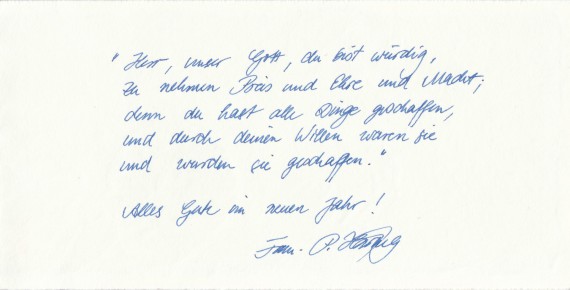 "Herr, unser Gott, du bist würdig,
zu nehmen Preis und Ehre und Macht;
denn du hast alle Dinge geschaffen,
und durch deinen Willen waren sie
und wurden sie geschaffen."
Alles Gute im neuen Jahr!
P.